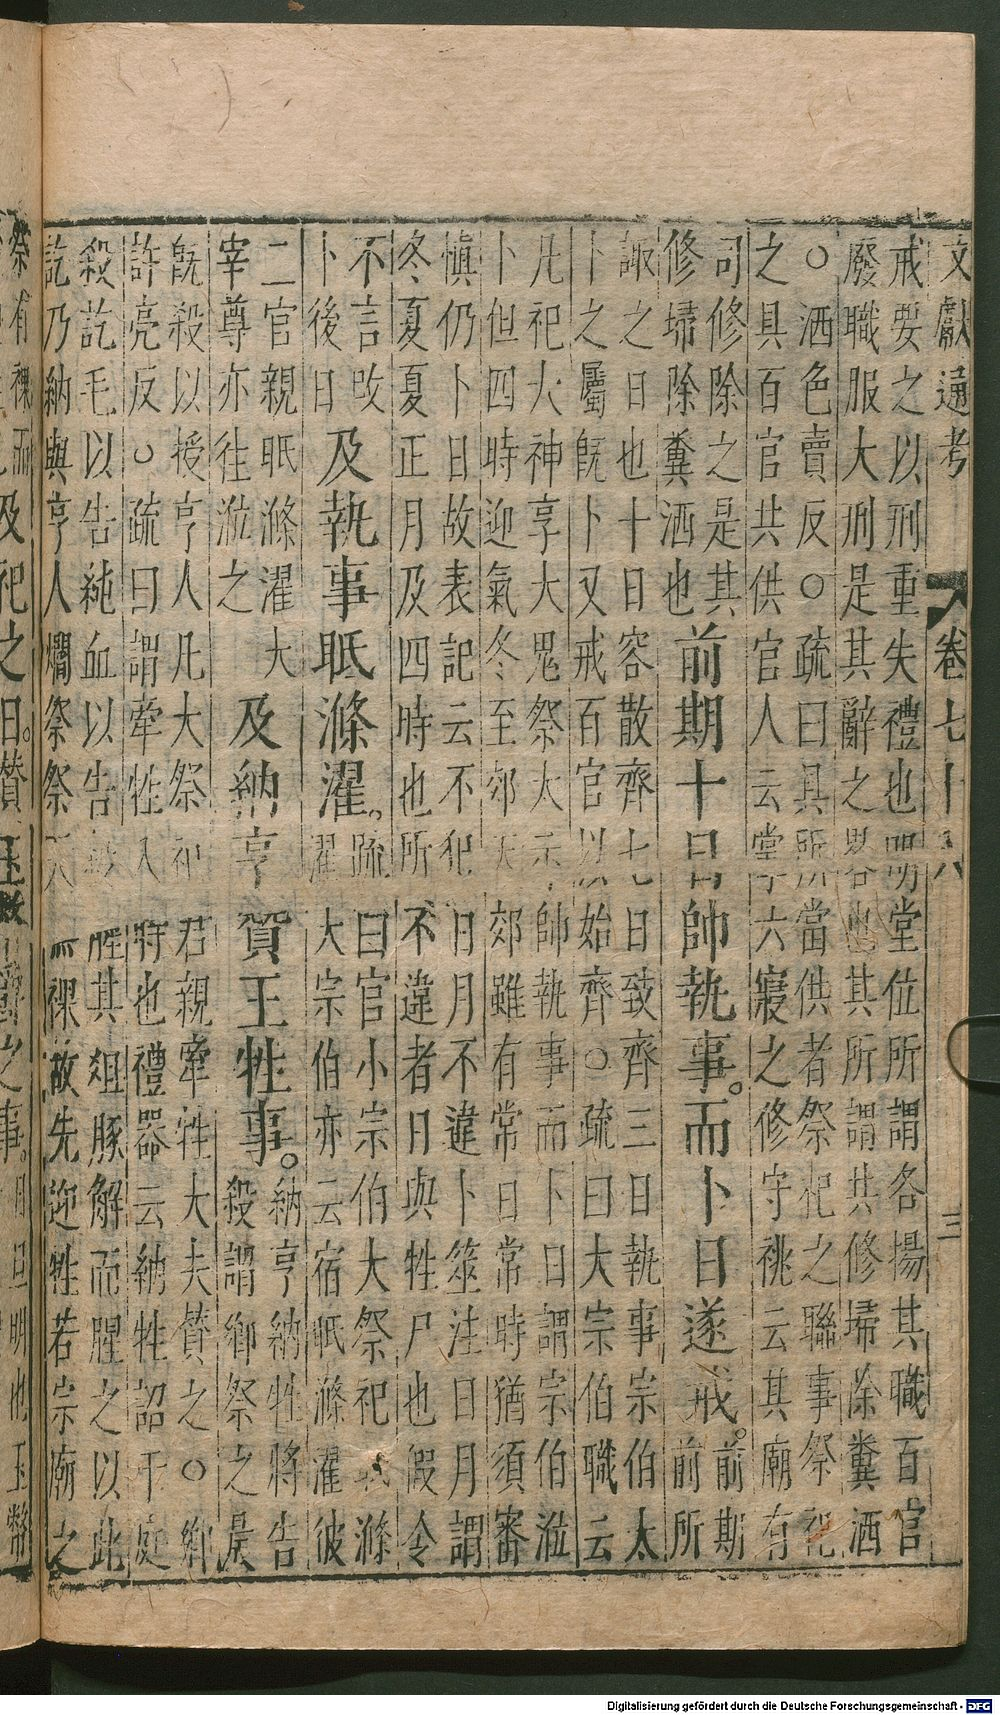 文獻通考 卷七十八 三
戒要之以刑重失禮也明堂位所謂各揚其職百官
廢職服大刑是其辭之畧也其所謂共修埽除糞洒
○洒色賣反○疏曰具所當供者祭祀之聯事祭祀
之具百官共供官人云掌六寢之修守祧云其廟有
司修除之是其
修埽除糞洒也
前期十日帥執事而卜日遂戒
前期
前所
諏之日也十日容散齊七日致齊三日執事宗伯太
卜之屬旣卜又戒百官以始齊○疏曰大宗伯職云
凡祀大神享大鬼祭大示帥執事而卜日謂宗伯涖
卜但四時迎氣冬至郊天郊雖有常日常時猶須審
愼仍卜日故表記云不犯日月不違卜筮注日月謂
冬夏夏正月及四時也所不違者日與牲尸也假令
不言改
卜後日
及執事眡滌濯
疏曰官小宗伯大祭祀眡滌
濯大宗伯亦云宿眡滌濯彼
二官親眡滌濯大
宰尊亦往涖之
及納亨贊王牲事
納亨納牲將告
殺謂鄉祭之晨
旣殺以授亨人凡大祭祀君親牽牲大夫贊之○鄉
許亮反○疏曰謂牽牲入將也禮器云納牲詔于庭
殺訖毛以告純血以告殺腥其俎豚解而腥之以此
訖乃納與亨人爓祭祭天無祼故先迎牲若宗廟之
祭有祼而
及祀之日贊玉
之事
日旦明也玉幣
Digitalisierung gefördert durch die Deutsche Forschungsgemeinschaft - DFG